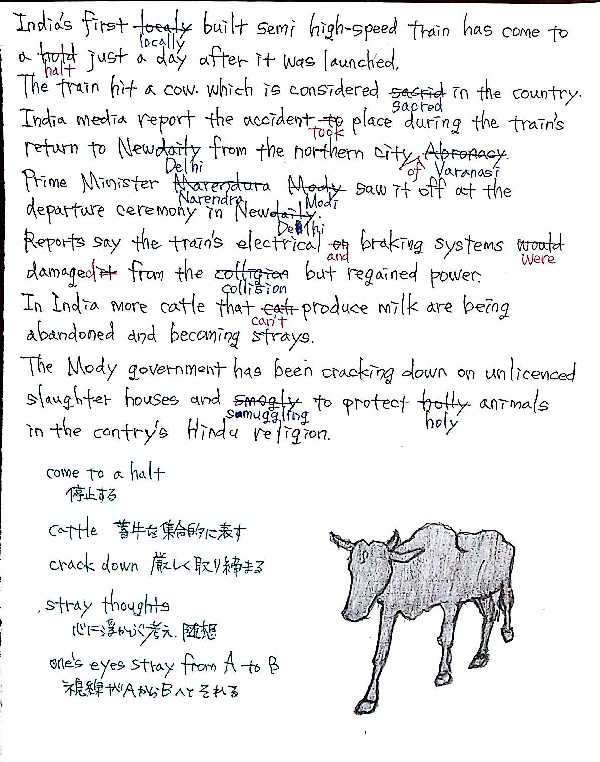 India's first localy built semi high-speed train has come to
locally
a hold just a day after it was launched.
halt
The train hit a cow. which is considered sacrid in the country.
sacred
India media report the accident to place during the train's
took
return to Newdaily from the northern city Abronacy.
Delhi of Varanasi
Prime Minister Marendura Mody saw it off at the
Narendra Modi
departure ceremony in Newdaily.
Delhi
Reports say the train's electrical or braking systems would
and were
damaged it from the colligion but regained power.
collision
In India more cattle that can produce milk are being
can't
abandoned and becoming strays.
The Mody government has been cracking down on unlicenced
slaughter houses and smogly to protect holly animals
samuggling holy
in the contry's Hindu religion.
come to a halt
停止する
cattle 畜牛を集合的に表す
crack down 厳しく取り締まる
stray thoughts
心に浮かぶ考え、随想
one's eyes stray from A to B
視線がAからBへとそれる